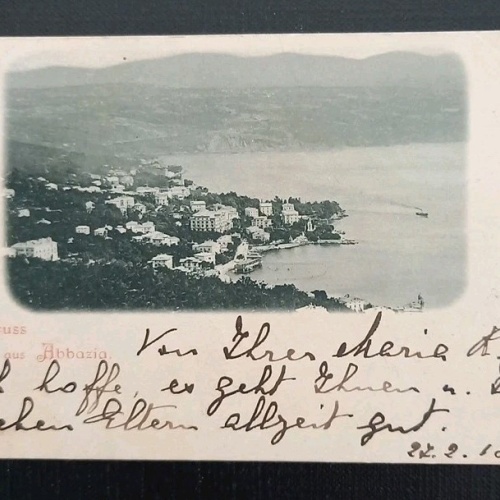 Gruss
aus Abbazia.
Von Ihrer Maria K
hoffe, es geht Ihnen u.
Eltern allzeit gut.
27. 2.